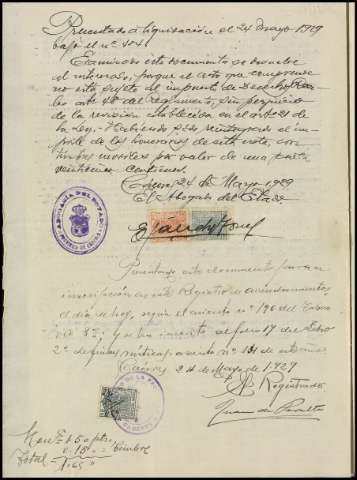 Presentado a liquidación el 24 mayo 1929
bajo el nº 404.
Examinado este documento se devuelve
al interesado, porque el acto que comprende
no está sujeto al impuesto de Derechos Rea-
les del reglamento, sin perjuicio
de la revisión establecida en el artº 21 de
la Ley. Habiendo sido reintegrado el im-
porte de los honorarios de esta nota, con
timbres móviles por valor de una peseta
veinticinco centimos.
Cáceres 24 de Mayo 1929
El Abogado del Estado
ABOGACIA DEL ESTADO
CACERES
Presentado este documento para su
inscripción en este Registro de arrendamientos
el día de hoy, según el asiento nº 196 del
y queda inscrito al folio 17 del Libro
2º de fincas rusticas, asiento nº 131 de
Cáceres 24 de Mayo de 1929
El Registrador
Juan de Peralta
CACERES
Hon. 1.50 ptas
0.15 " Timbre
Total = 1.65 "